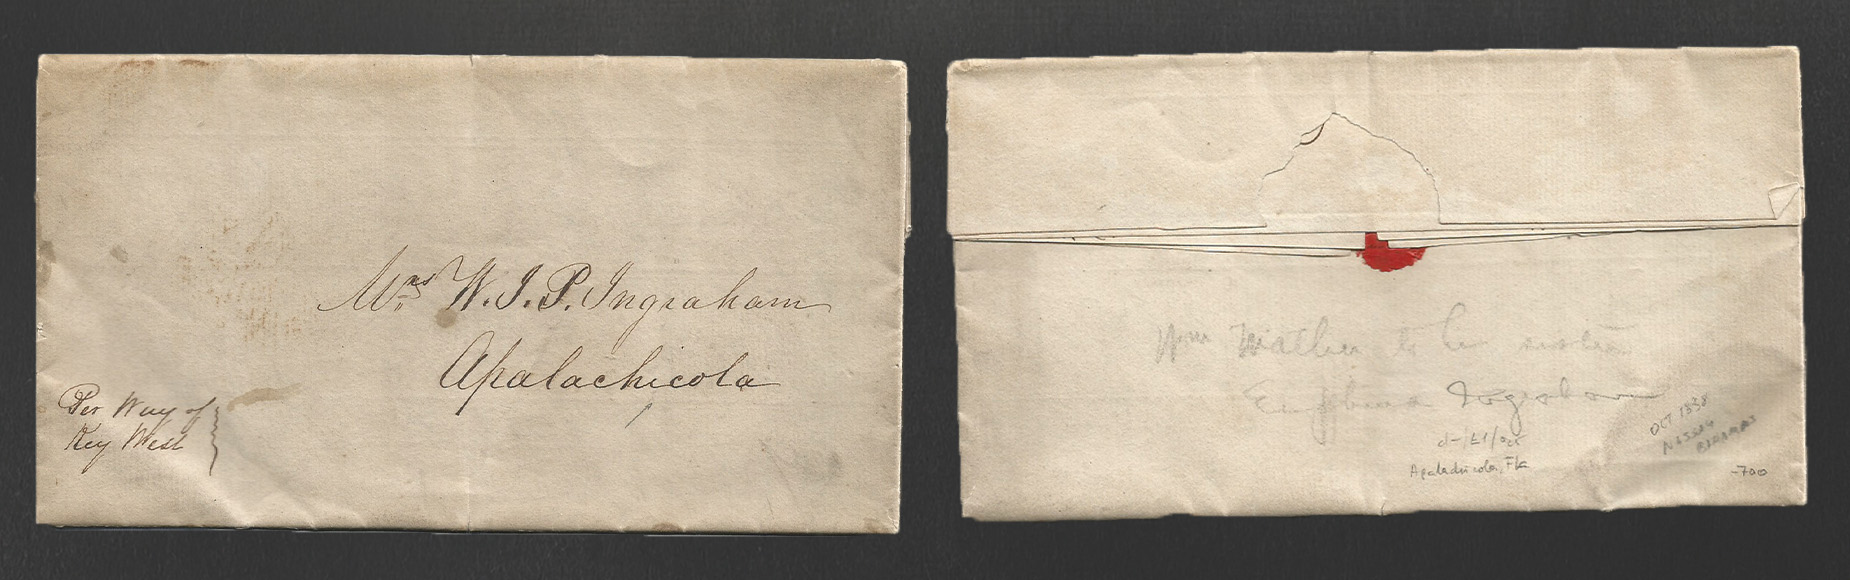 Mrs W. J. P. Ingraham
Apalachicola
Per Way of
Key West
Wm Mather to his sister
Ingraham
OCT 1838
NASSAU
BAHAMAS
Apalachicola, Fla
-700